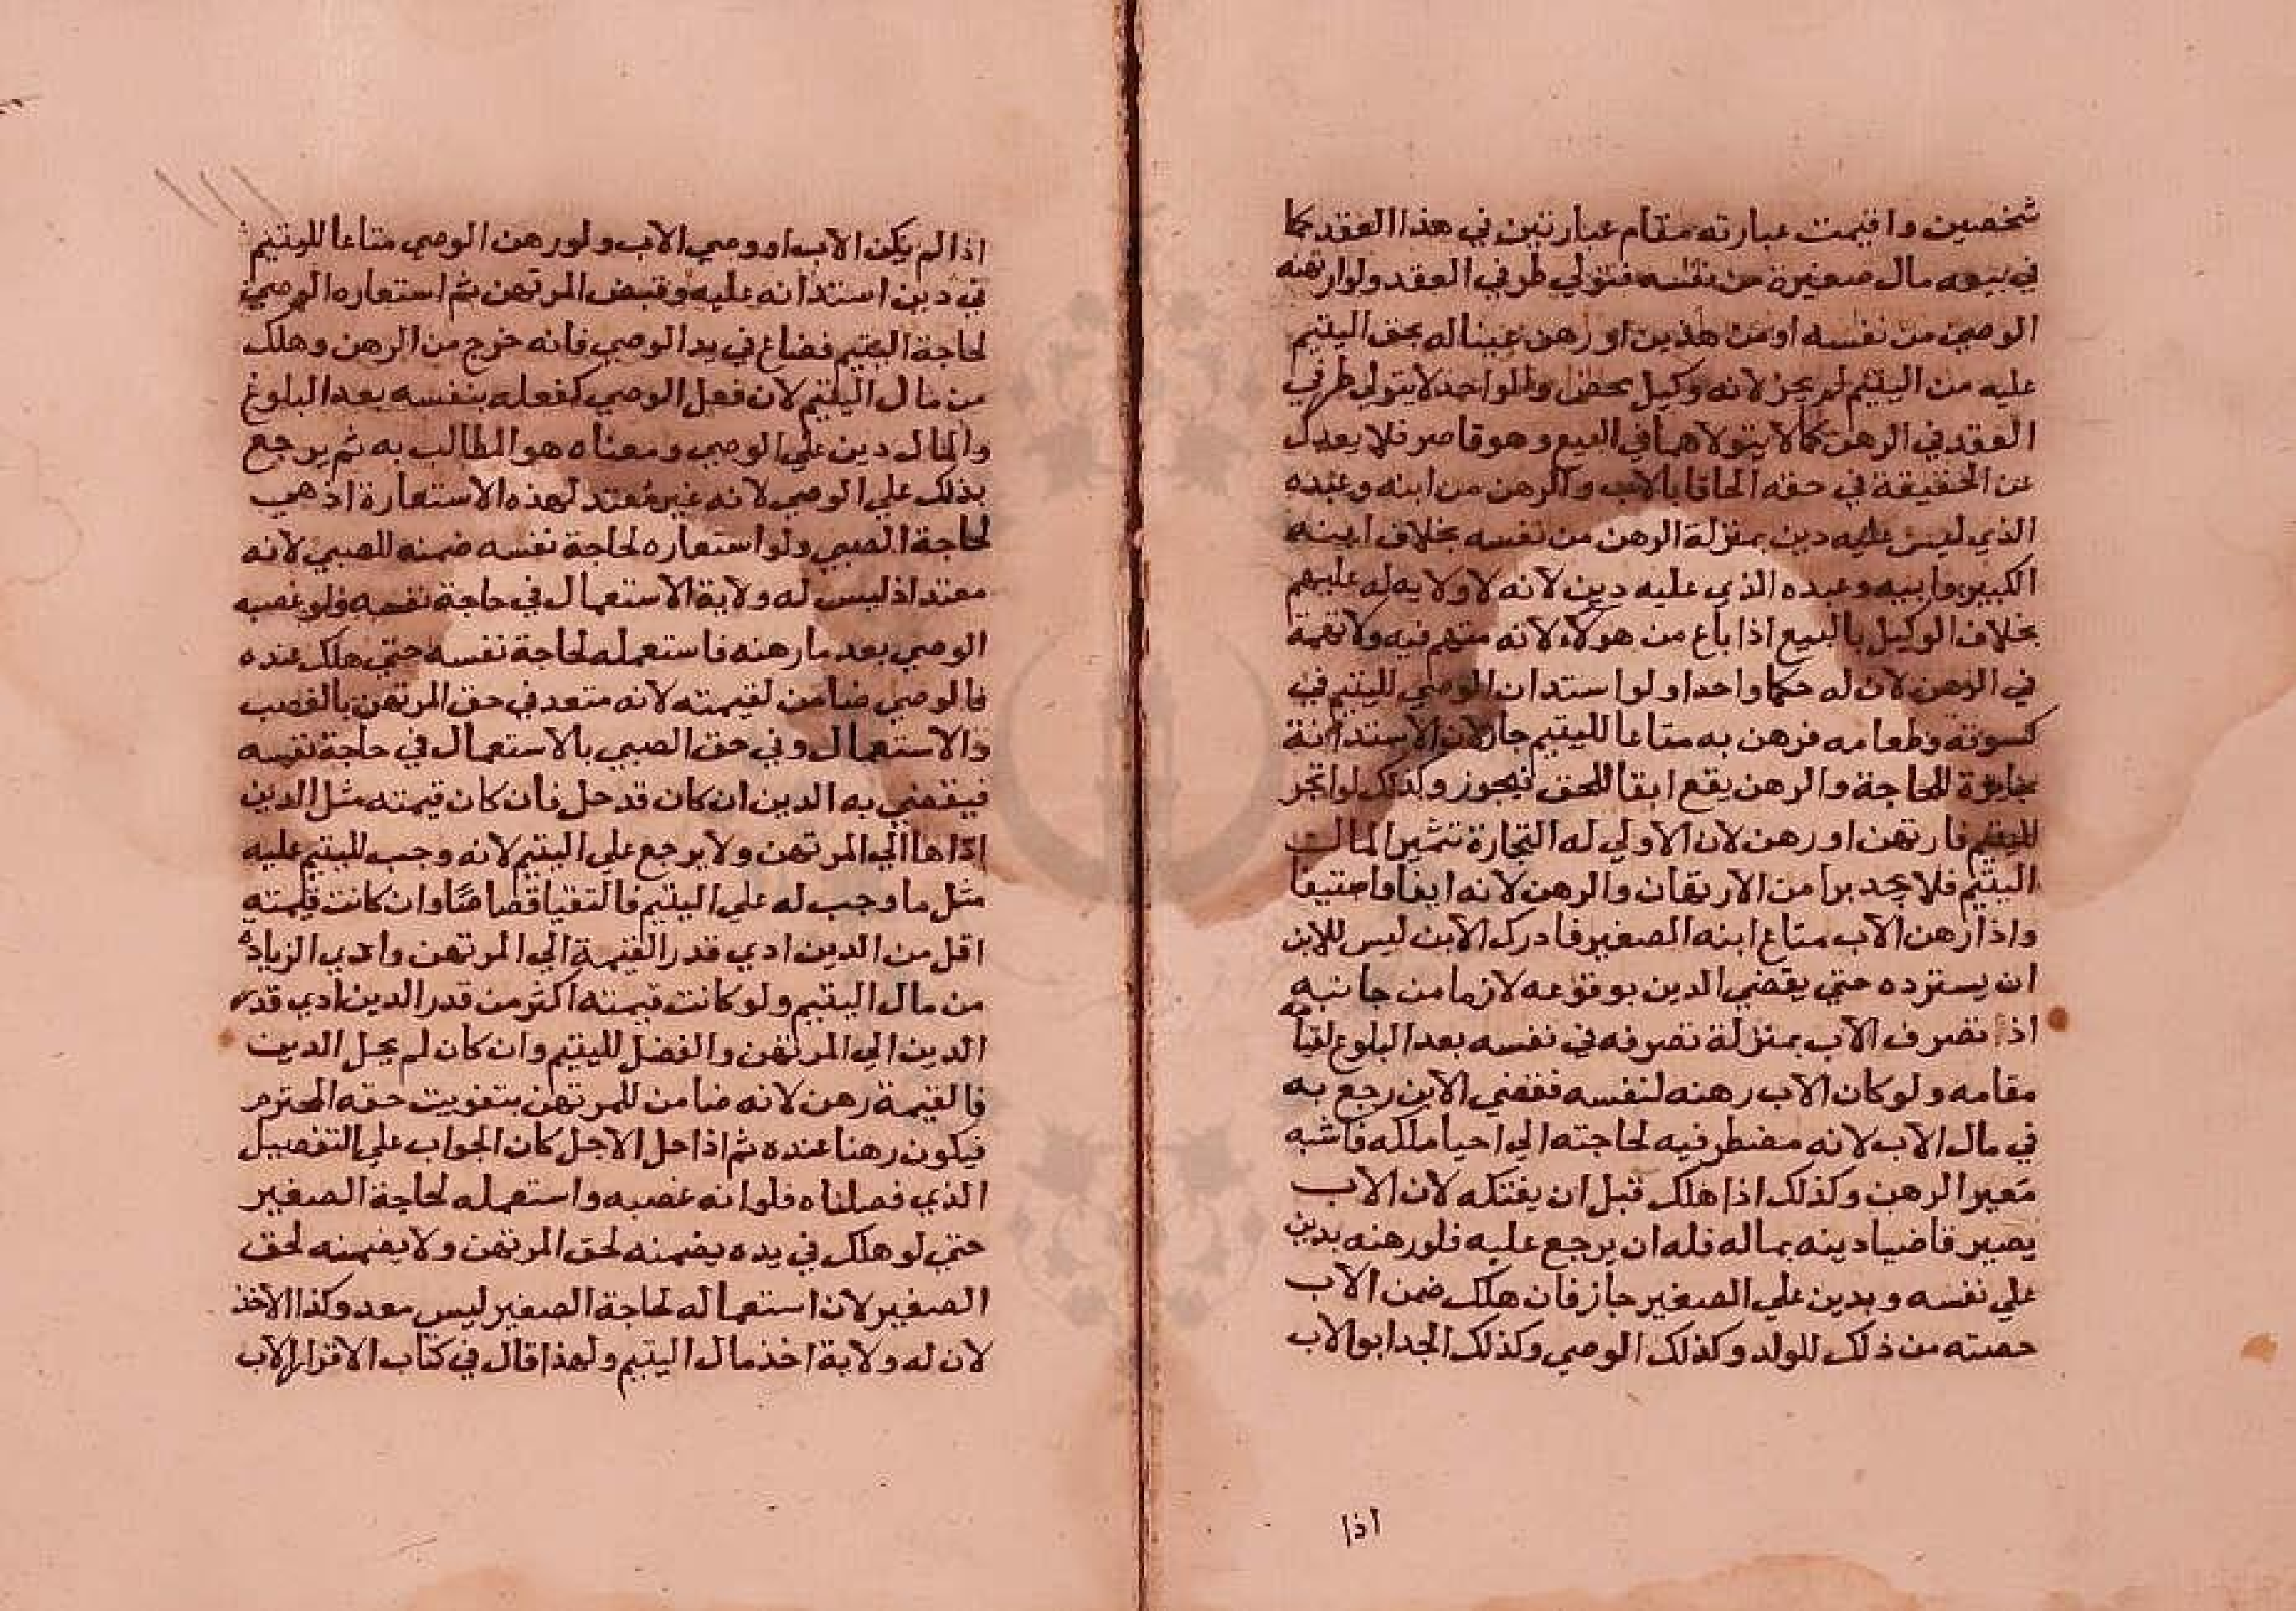 شخصين واقيمت عبارته مقام عبارتين في هذا العقد كما
في بيعه مال صغيرة من نفسه فتولي طرفي العقد ولو ارتهنه
الوصي من نفسه او من هذين او رهن عينا له بحق اليتيم
عليه من اليتيم لم يجز لانه وكيل محض والواحد لا يتولي طرفي
العقد في الرهن كما لا يتولاهما في البيع وهو قاصر فلا يعدل
عن الحقيقة في حقه الحاقا بالاب والرهن من ابنه وعبده
الذي ليس عليه دين بمنزلة الرهن من نفسه بخلاف ابينه
الكبير وابيه وعبده الذي عليه دين لانه لا ولايه له عليهم
بخلاف الوكيل بالبيع اذا باع من هولاء لانه متهم فيه ولا تهمة
في الرهن لان له حكما واحدا ولو استدان الوصي لليتيم في
كسوته وطعامه فرهن به متاعا لليتيم جاز لان الاستدانة
جايزة للحاجة والرهن يقع ايفا للحق فيجوز وكذلك لو اتجر
لليتيم فارتهن او رهن لان الاولي له التجارة تثميرا لمال
اليتيم فلا يجد برا من الارتهان والرهن لانه ايفا واستيفا
واذا رهن الاب متاع ابنه الصغير فادرك الابن ليس للابن
ان يسترده حتي يقضي الدين بوقوعه لازما من جانبه
اذا تصرف الاب بمنزلة تصرفه في نفسه بعد البلوغ لقيامه
مقامه ولو كان الاب رهنه لنفسه فقضي الابن رجع به
في مال الاب لانه مضطر فيه لحاجته الي احيا ملكه فاشبه
معير الرهن وكذلك اذا هلك قبل ان يفتكه لان الاب
يصير قاضيا دينه بماله فله ان يرجع عليه فلو رهنه بدين
علي نفسه وبدين علي الصغير جاز فان هلك ضمن الاب
حصته من ذلك للولد وكذلك الوصي وكذلك الجد ابو الاب
اذا
اذا لم يكن الاب او وصي الاب ولو رهن الوصي متاعا لليتيم
في دين استدانه عليه وقبض المرتهن ثم استعاره الوصي
لحاجة اليتيم فضاع في يد الوصي فانه خرج من الرهن وهلك
من مال اليتيم لان فعل الوصي كفعله بنفسه بعد البلوغ
والمال دين علي الوصي ومعناه هو المطالب به ثم يرجع
بذلك علي الوصي لانه غير معتد لهذه الاستعارة اذ هي
لحاجة الصبي ولو استعاره لحاجة نفسه ضمنه للصبي لانه
معتد اذ ليس له ولاية الاستعمال في حاجة نفسه ولو غصبه
الوصي بعد ما رهنه فاستعمله لحاجة نفسه حتي هلك عنده
فالوصي ضامن لقيمته لانه متعد في حق المرتهن بالغصب
والاستعمال وفي حق الصبي بالاستعمال في حاجة نفسه
فيقضي به الدين ان كان قد حل فان كان قيمته مثل الدين
اداها الي المرتهن ولا يرجع علي اليتيم لانه وجب لليتيم عليه
مثل ما وجب له علي اليتيم فالتقيا قصاصا وان كانت قيمته
اقل من الدين ادي قدر القيمة الي المرتهن وادي الزيادة
من مال اليتيم ولو كانت قيمته اكثر من قدر الدين ادي قدر
الدين الي المرتهن والفضل لليتيم وان كان لم يحل الدين
فالقيمة رهن لانه ضامن للمرتهن بتفويت حقه المحترم
فيكون رهنا عنده ثم اذا حل الاجل كان الجواب علي التفصيل
الذي فصلناه فلو انه غصبه واستعمله لحاجة الصغير
حتي لو هلك في يده يضمنه لحق المرتهن ولا يضمنه لحق
الصغير لان استعماله لحاجة الصغير ليس معد وكذا الاخذ
لان له ولاية اخذ مال اليتيم ولهذا قال في كتاب الاقرار الاب